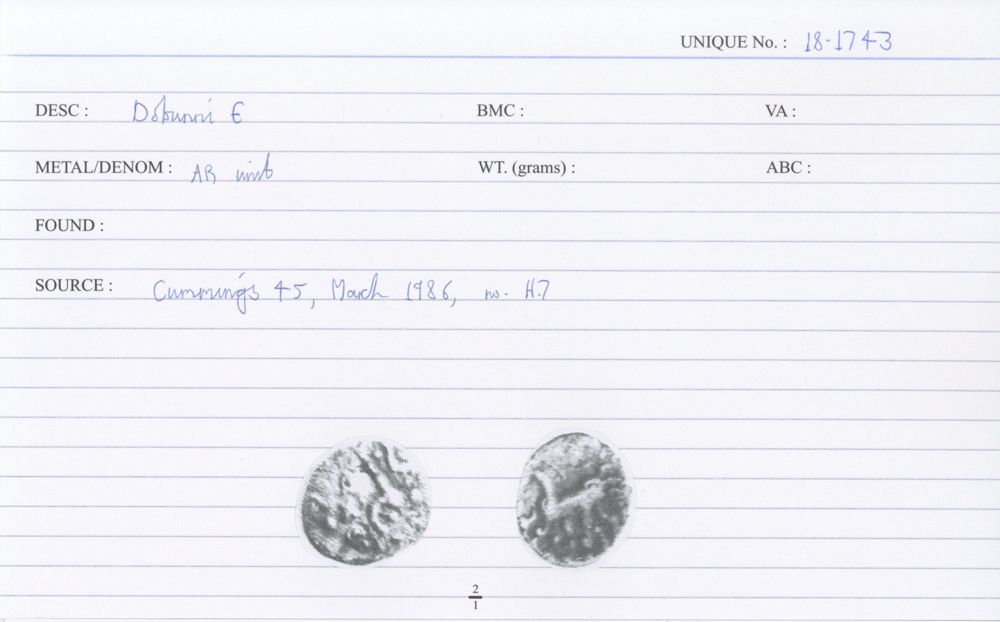 UNIQUE No. : 18-1743
DESC : Dobunni E BMC : VA :
METAL/DENOM : AR unit WT. (grams) : ABC :
FOUND :
SOURCE : Cummings 45, March 1986, no. H.7
2
1